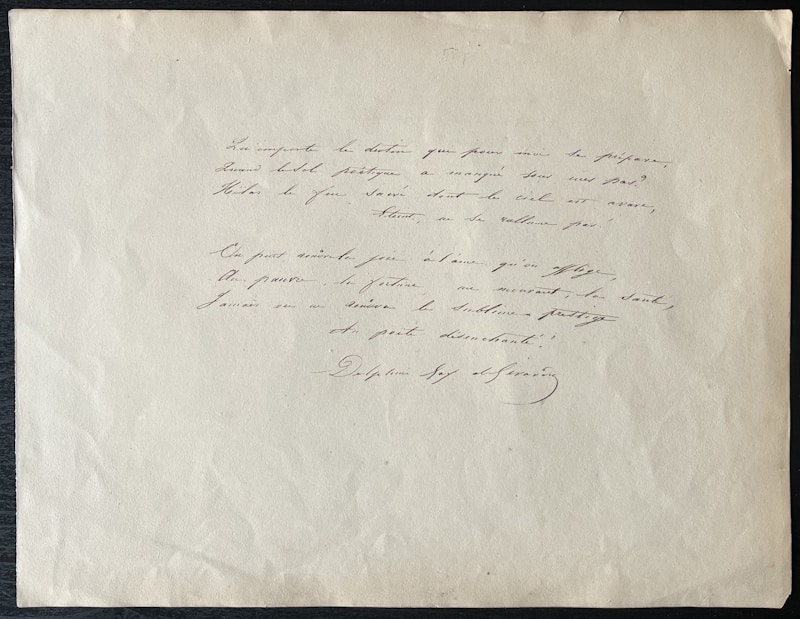 Qu'importe le destin que pour moi se prépare,
Quand le sol poétique a manqué sous mes pas?
Hélas le feu sacré dont le ciel est avare,
Eteint, ne se rallume pas!
On peut rendre la joie à l'âme qu'on afflige,
Au pauvre la fortune, au mourant, la santé,
Jamais on ne rendra le sublime prestige
Au poète désenchanté!
Delphine Gay de Girardin